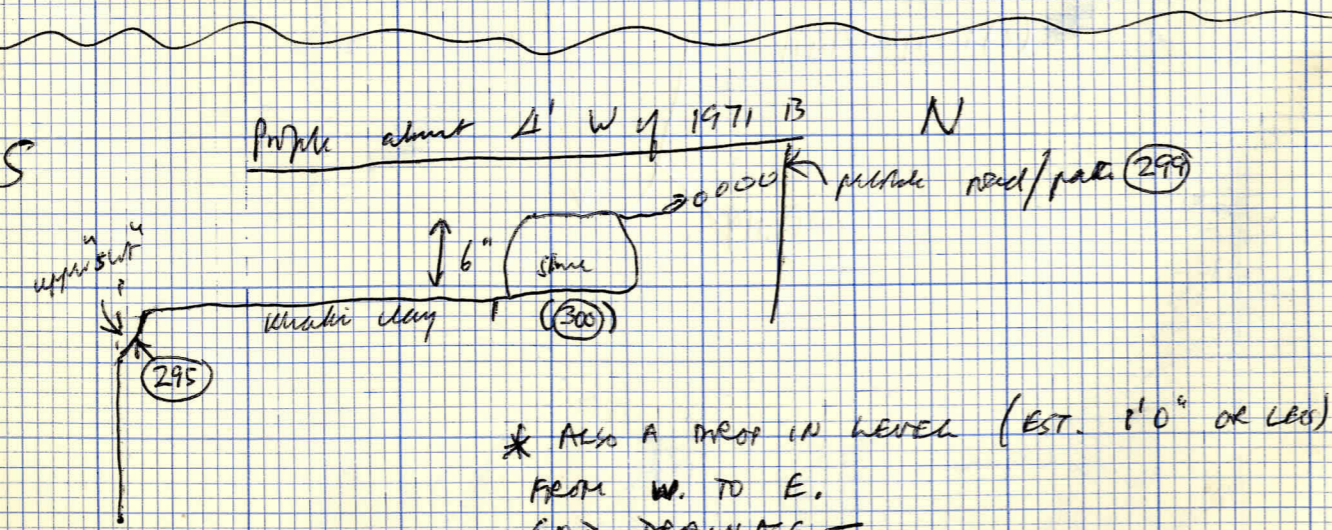 S
Profile about 4' W of 1971 B
N
pebble road/path (299)
upper "silt"
6"
stone
khaki clay
(300)
295
* ALSO A DROP IN LEVEL (EST. 1'0" OR LESS)
FROM W. TO E.